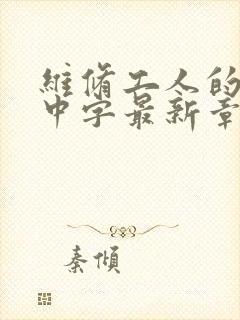 維脩工人的
中字最新章
秦傾